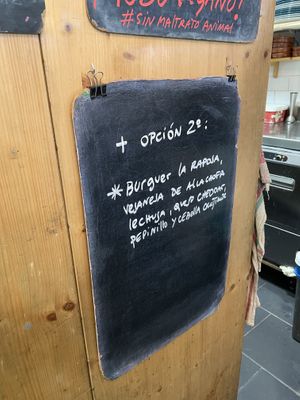 TODO VEGANO!
#SIN MALTRATO ANIMAL
+ OPCIÓN 2ª:
* BURGUER LA RAPOSA,
VEGANESA DE ALCACHOFA
LECHUGA, QUESO CHEDDAR,
PEPINILLO Y CEBOLLA